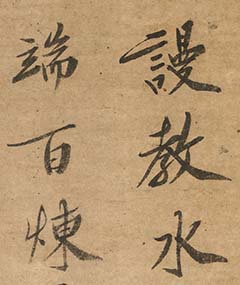 謾教水
端百煉